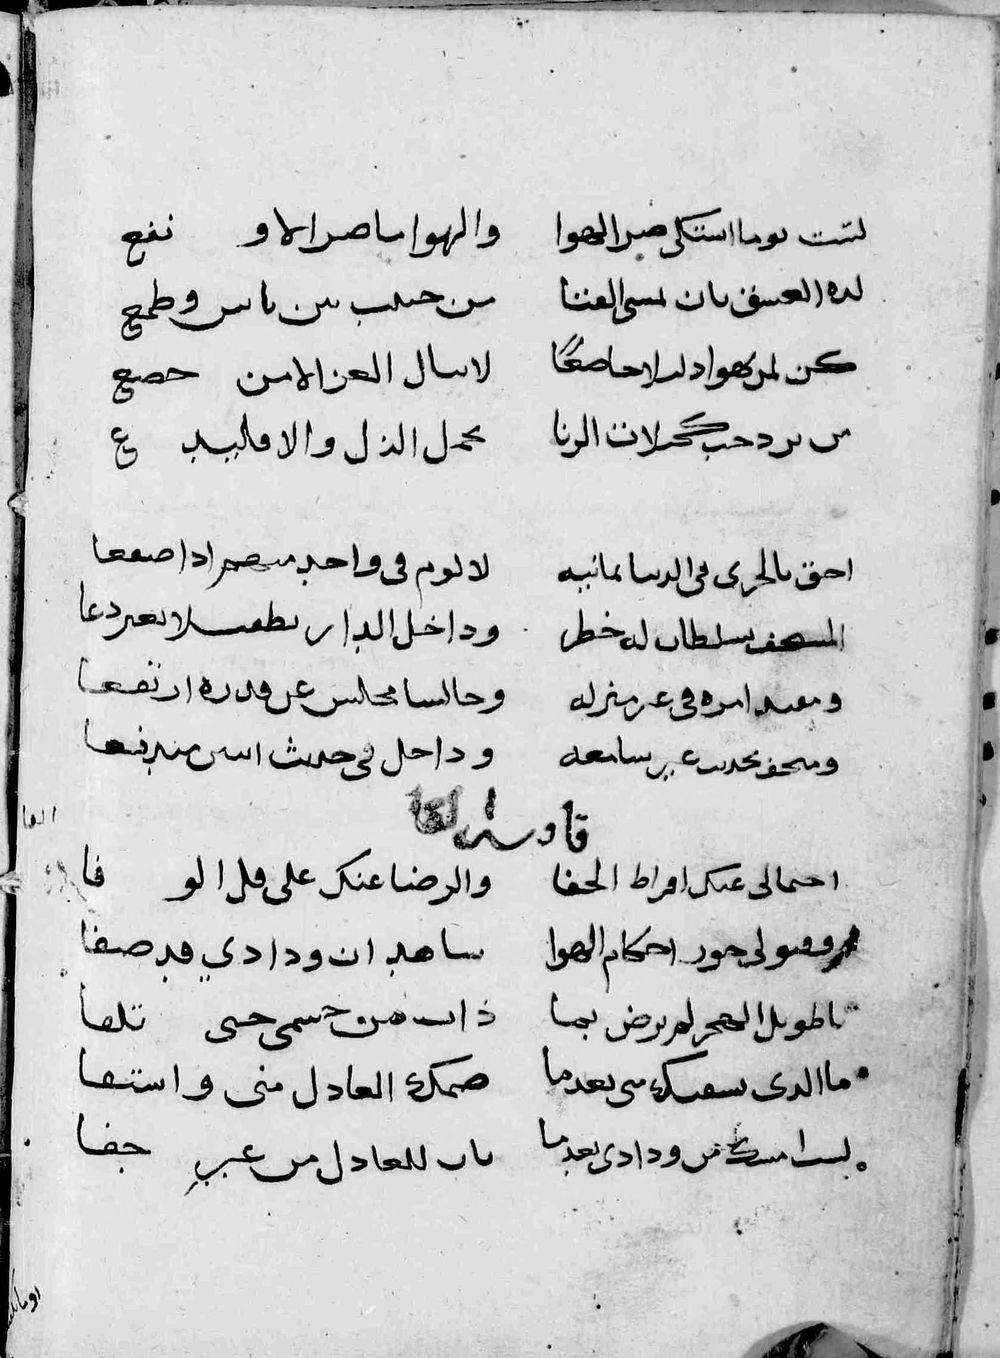 لست يوما اشتكي ضر الهوا والهوا ما ضر الا و نفع
لذه العشق بان يمسي الفتا من حبيب بين ياس وطمع
كن لمن تهوا ذليلا خاضعا لا ينال العز الا من خضع
من يرد حب كحيلات الرنا يحمل الذل والا فليدع
احق بالجرى في الدنيا ثمانيه لا لوم في واحد منهم اذا صفعا
المستخف بسلطان له خطر وداخل الدار تطفيلا بغير دعا
ومنفد امره في غير منزله وجالسا مجلس عن قدره ارتفعا
ومتحف بحديث غير سامعه وداخل في حديث اثنين مندفعا
قافيه الفا
احتمالي عنك افراط الجفا والرضا عنك على قل الوفا
وقبولي جور احكام الهوا شاهد ان ودادي قد صفا
يا طويل الهجر لم ترض بما ذاب من جسمي حتى تلفا
ما الذي يسفيك مني بعدما ضحك العادل مني واشتفا
لست امسك من ودادي بعدما بان للعادل من غير جفا